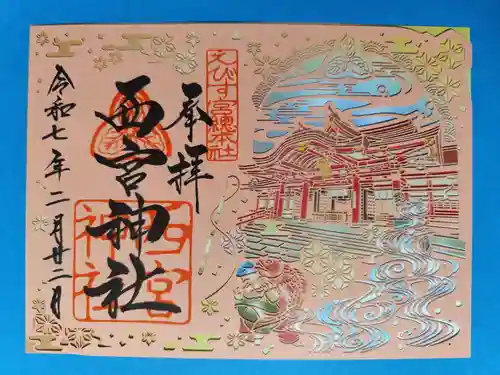 奉拝
えびす宮総本社
西宮神社
西宮神社
令和七年二月廿二月